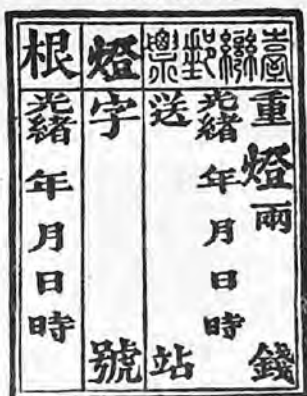 臺灣郵票
重 兩 錢
燈
光緒 年 月 日 時
送 站
燈字 號
根
光緒 年 月 日 時